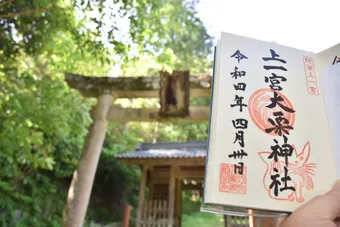 上一宮大粟神社
令和四年四月卅日
阿波上一宮